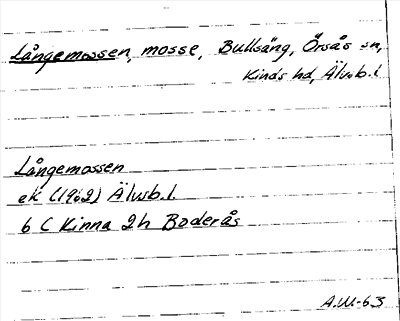 Långemossen, mosse, Bullsäng, Örsås sn,
Kinds hd, Älvsb.l
Långemossen
ek (1962) Älvsb.l.
6 C Kinna 2h Boderås
A.M-63